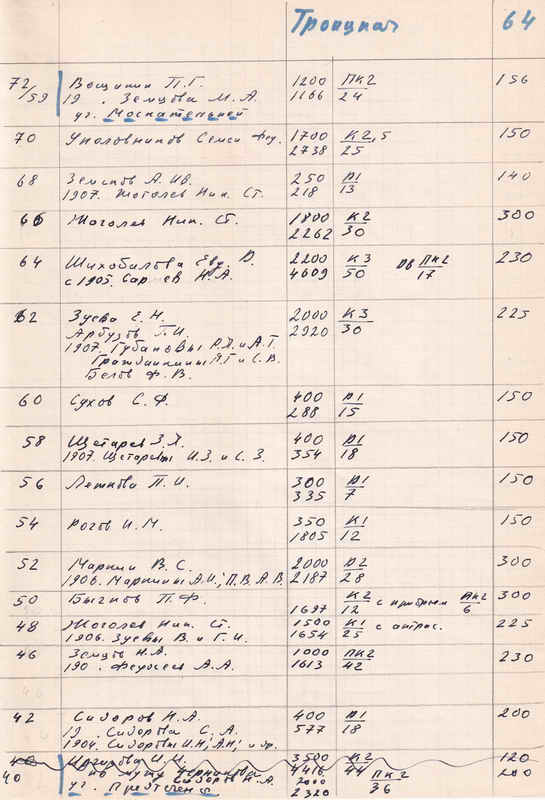 Троицкая 64
72/59 Вощинин П.Г. 1200 ПК2 156
19 . Земцова М.А. 1166 24
уг. Москательной
70 Уполовников Семен Фед. 1700 К2,5 150
2738 25
68 Земсков А. Ив. 250 Д1 140
1907. Жоголев Ник. Ст. 218 13
66 Жоголев Ник. Ст. 1800 К2 300
2262 30
64 Шихобалова Евд. В. 2200 К3 дв ПК2 230
с 1905. Н.А. 4609 50 17
62 Зуева Е.Н. 2000 К3 225
Арбузов П.И. 2920 30
1907. Губановы Р.Я. и А.Г.
Гражданкины А.Г. и С.В.
Белов Ф.В.
60 Сухов С.Ф. 400 Д1 150
288 15
58 Щетарев З.Я. 400 Д1 150
1907. Щетаревы И.З. и С.З. 354 18
56 Леткова П.И. 300 Д1 150
335 7
54 Рогов И.М. 350 К1 150
1805 12
52 Маркин В.С. 2000 Д2 300
1906. Маркины А.И., П.В. А.В. 2187 28
50 Бычков П.Ф. К2 с прибрам ПК2 300
1697 12 6
48 Жоголев Ник. Ст. 1500 К1 с антрес. 225
1906. Зуевы В. и Г.И. 1654 25
46 Земцов Н.А. 1000 ПК2 230
190 . Федосеев А.А. 1613 42
42 Сидоров Н.А. 400 Д1 200
19 . Сидорова С.А. 577 18
1904. Сидоровы И.Н., А.Н., и др.
40 И.И. 3500 К2 120
по мужу 4416 44
40 Сидоров Н.А. 2000 ПК2 200
уг. Предтечен 2320 36